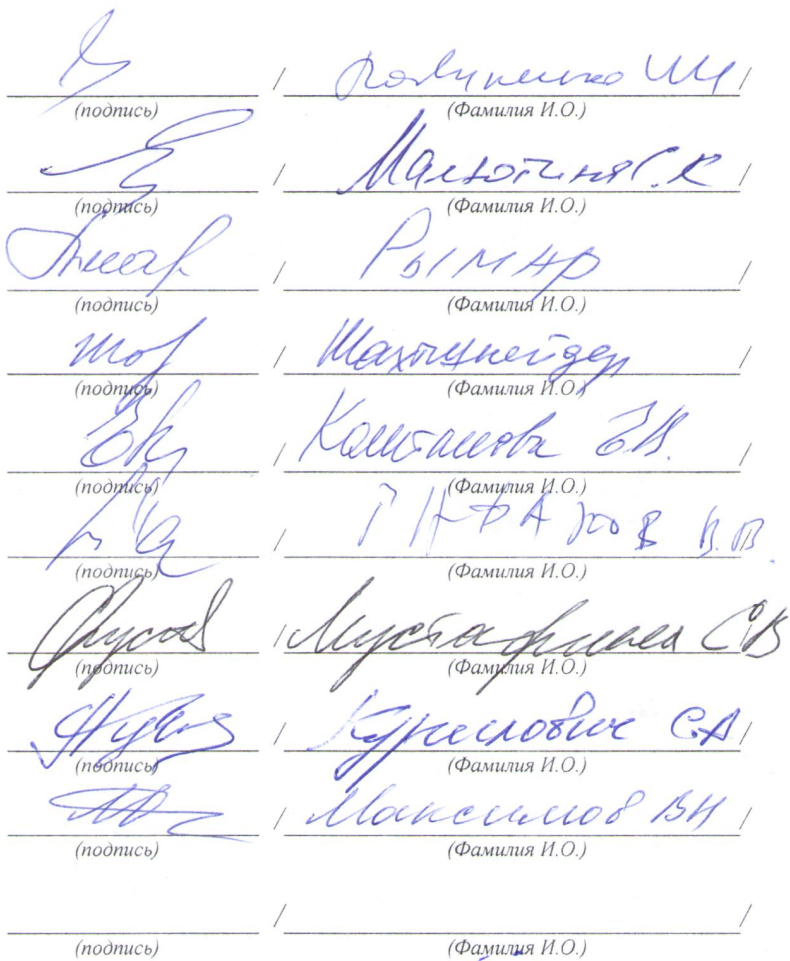 / /
(подпись) (Фамилия И.О.)
/ Малютина С.К /
(подпись) (Фамилия И.О.)
/ Рымар /
(подпись) (Фамилия И.О.)
/ Шахтшнейдер /
(подпись) (Фамилия И.О.)
/ Каштанова Е.В. /
(подпись) (Фамилия И.О.)
/ В.В.
(подпись) (Фамилия И.О.)
/ Мустафина СВ
(подпись) (Фамилия И.О.)
/ Курилович СА /
(подпись) (Фамилия И.О.)
/ Максимов ВН /
(подпись) (Фамилия И.О.)
/ /
(подпись) (Фамилия И.О.)